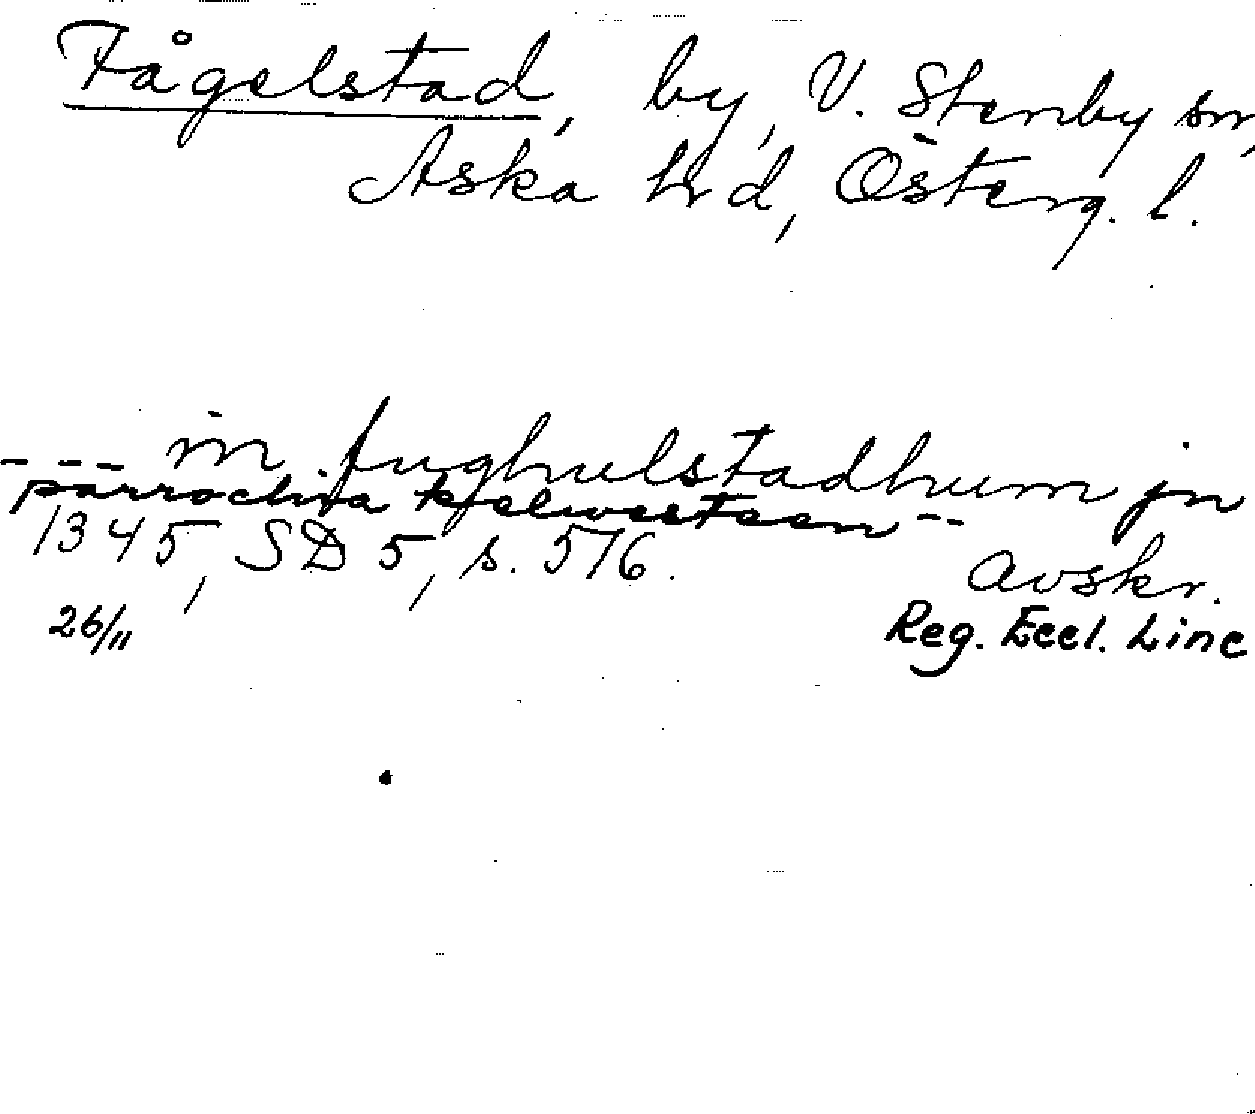 Fågelstad, by, V. Stenby sn,
Aska hd, Österg. l.
--- in fughulstadhum jn
parrochia kelwesteen --
1345, SD 5, s. 576.
Avskr.
26/11
Reg. Eccl. Linc